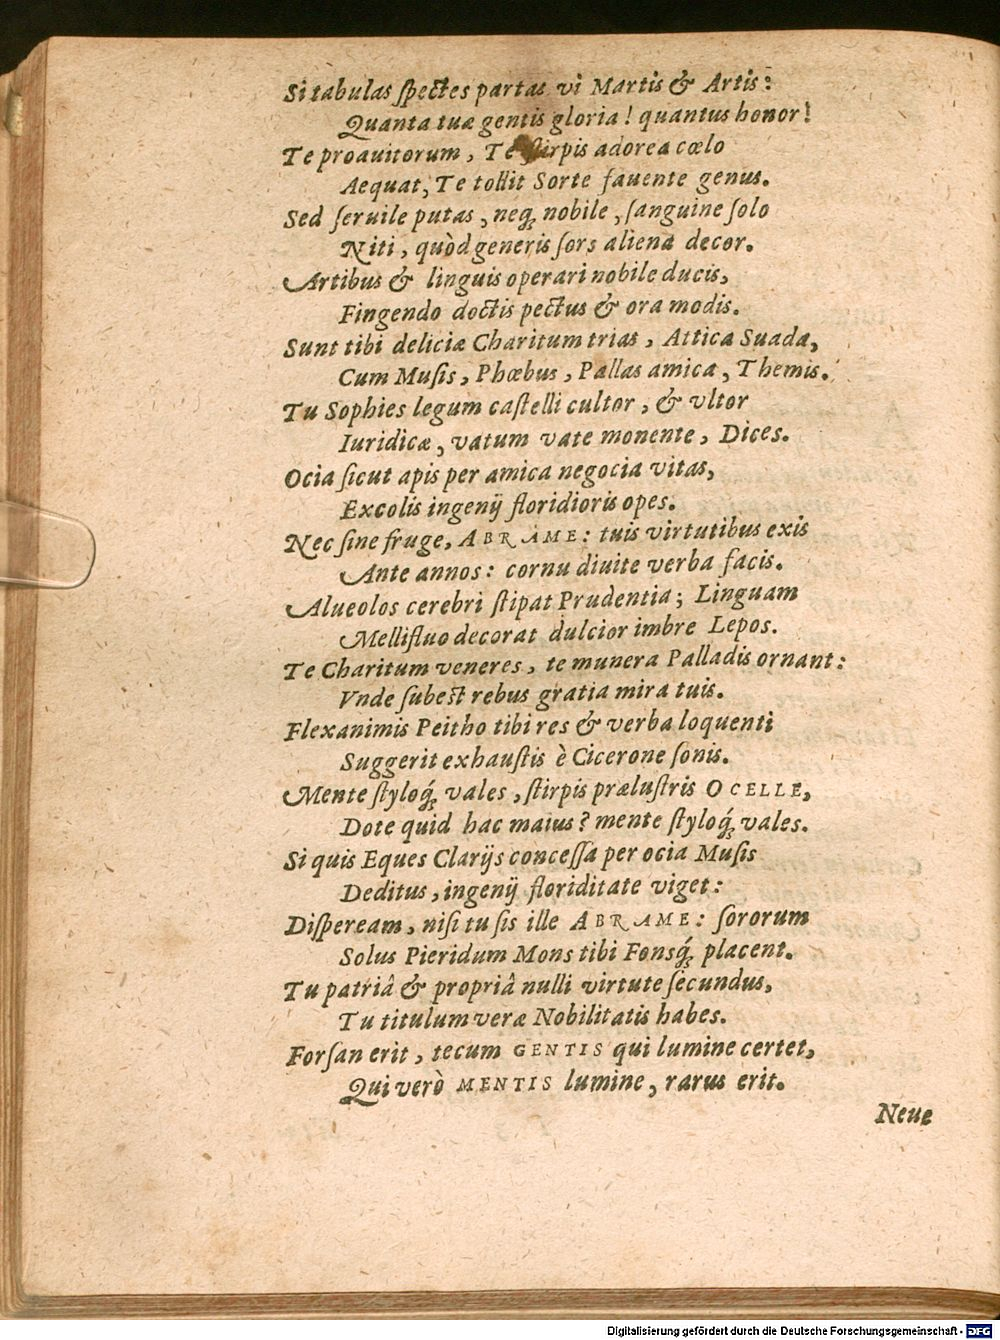 Si tabulas ſpectes partas vi Martis & Artis:
Quanta tuæ gentis gloria! quantus honor!
Te proauitorum, Te ſtirpis adorea cœlo
Aequat, Te tollit Sorte fauente genus.
Sed ſeruile putas, neq́; nobile, ſanguine ſolo
Niti, quòd generis ſors aliena decor.
Artibus & linguis operari nobile ducis,
Fingendo doctis pectus & ora modis.
Sunt tibi deliciæ Charitum trias, Attica Suada,
Cum Muſis, Phœbus, Pallas amica, Themis.
Tu Sophies legum caſtelli cultor, & vltor
Iuridicæ, vatum vate monente, Dices.
Ocia ſicut apis per amica negocia vitas,
Excolis ingenij floridioris opes.
Nec ſine fruge, ABRAME: tuis virtutibus exis
Ante annos: cornu diuite verba facis.
Alueolos cerebri ſtipat Prudentia; Linguam
Mellifluo decorat dulcior imbre Lepos.
Te Charitum veneres, te munera Palladis ornant:
Vnde ſubeſt rebus gratia mira tuis.
Flexanimis Peitho tibi res & verba loquenti
Suggerit exhauſtis è Cicerone ſonis.
Mente ſtyloq́; vales, ſtirpis præluſtris OCELLE,
Dote quid hac maius? mente ſtyloq́; vales.
Si quis Eques Clarijs conceſſa per ocia Muſis
Deditus, ingenij floriditate viget:
Diſpeream, niſi tu ſis ille ABRAME: ſororum
Solus Pieridum Mons tibi Fonsq́; placent.
Tu patriâ & propriâ nulli virtute ſecundus,
Tu titulum veræ Nobilitatis habes.
Forſan erit, tecum GENTIS qui lumine certet,
Qui verò MENTIS lumine, rarus erit.
Neue
Digitalisierung gefördert durch die Deutsche Forschungsgemeinschaft - DFG